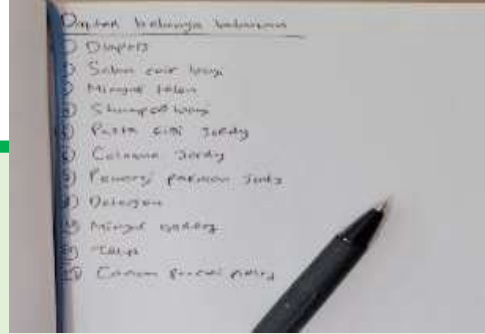 Daftar belanja bulanan
1) Diapers
2) Sabun cair bayi
3) Minyak telon
4) Shampoo bayi
5) Pasta gigi Jordy
6) Cologne Jordy
7) Pewangi pakaian Jordy
8) Detergen
9) Minyak goreng
10) Telur
11)